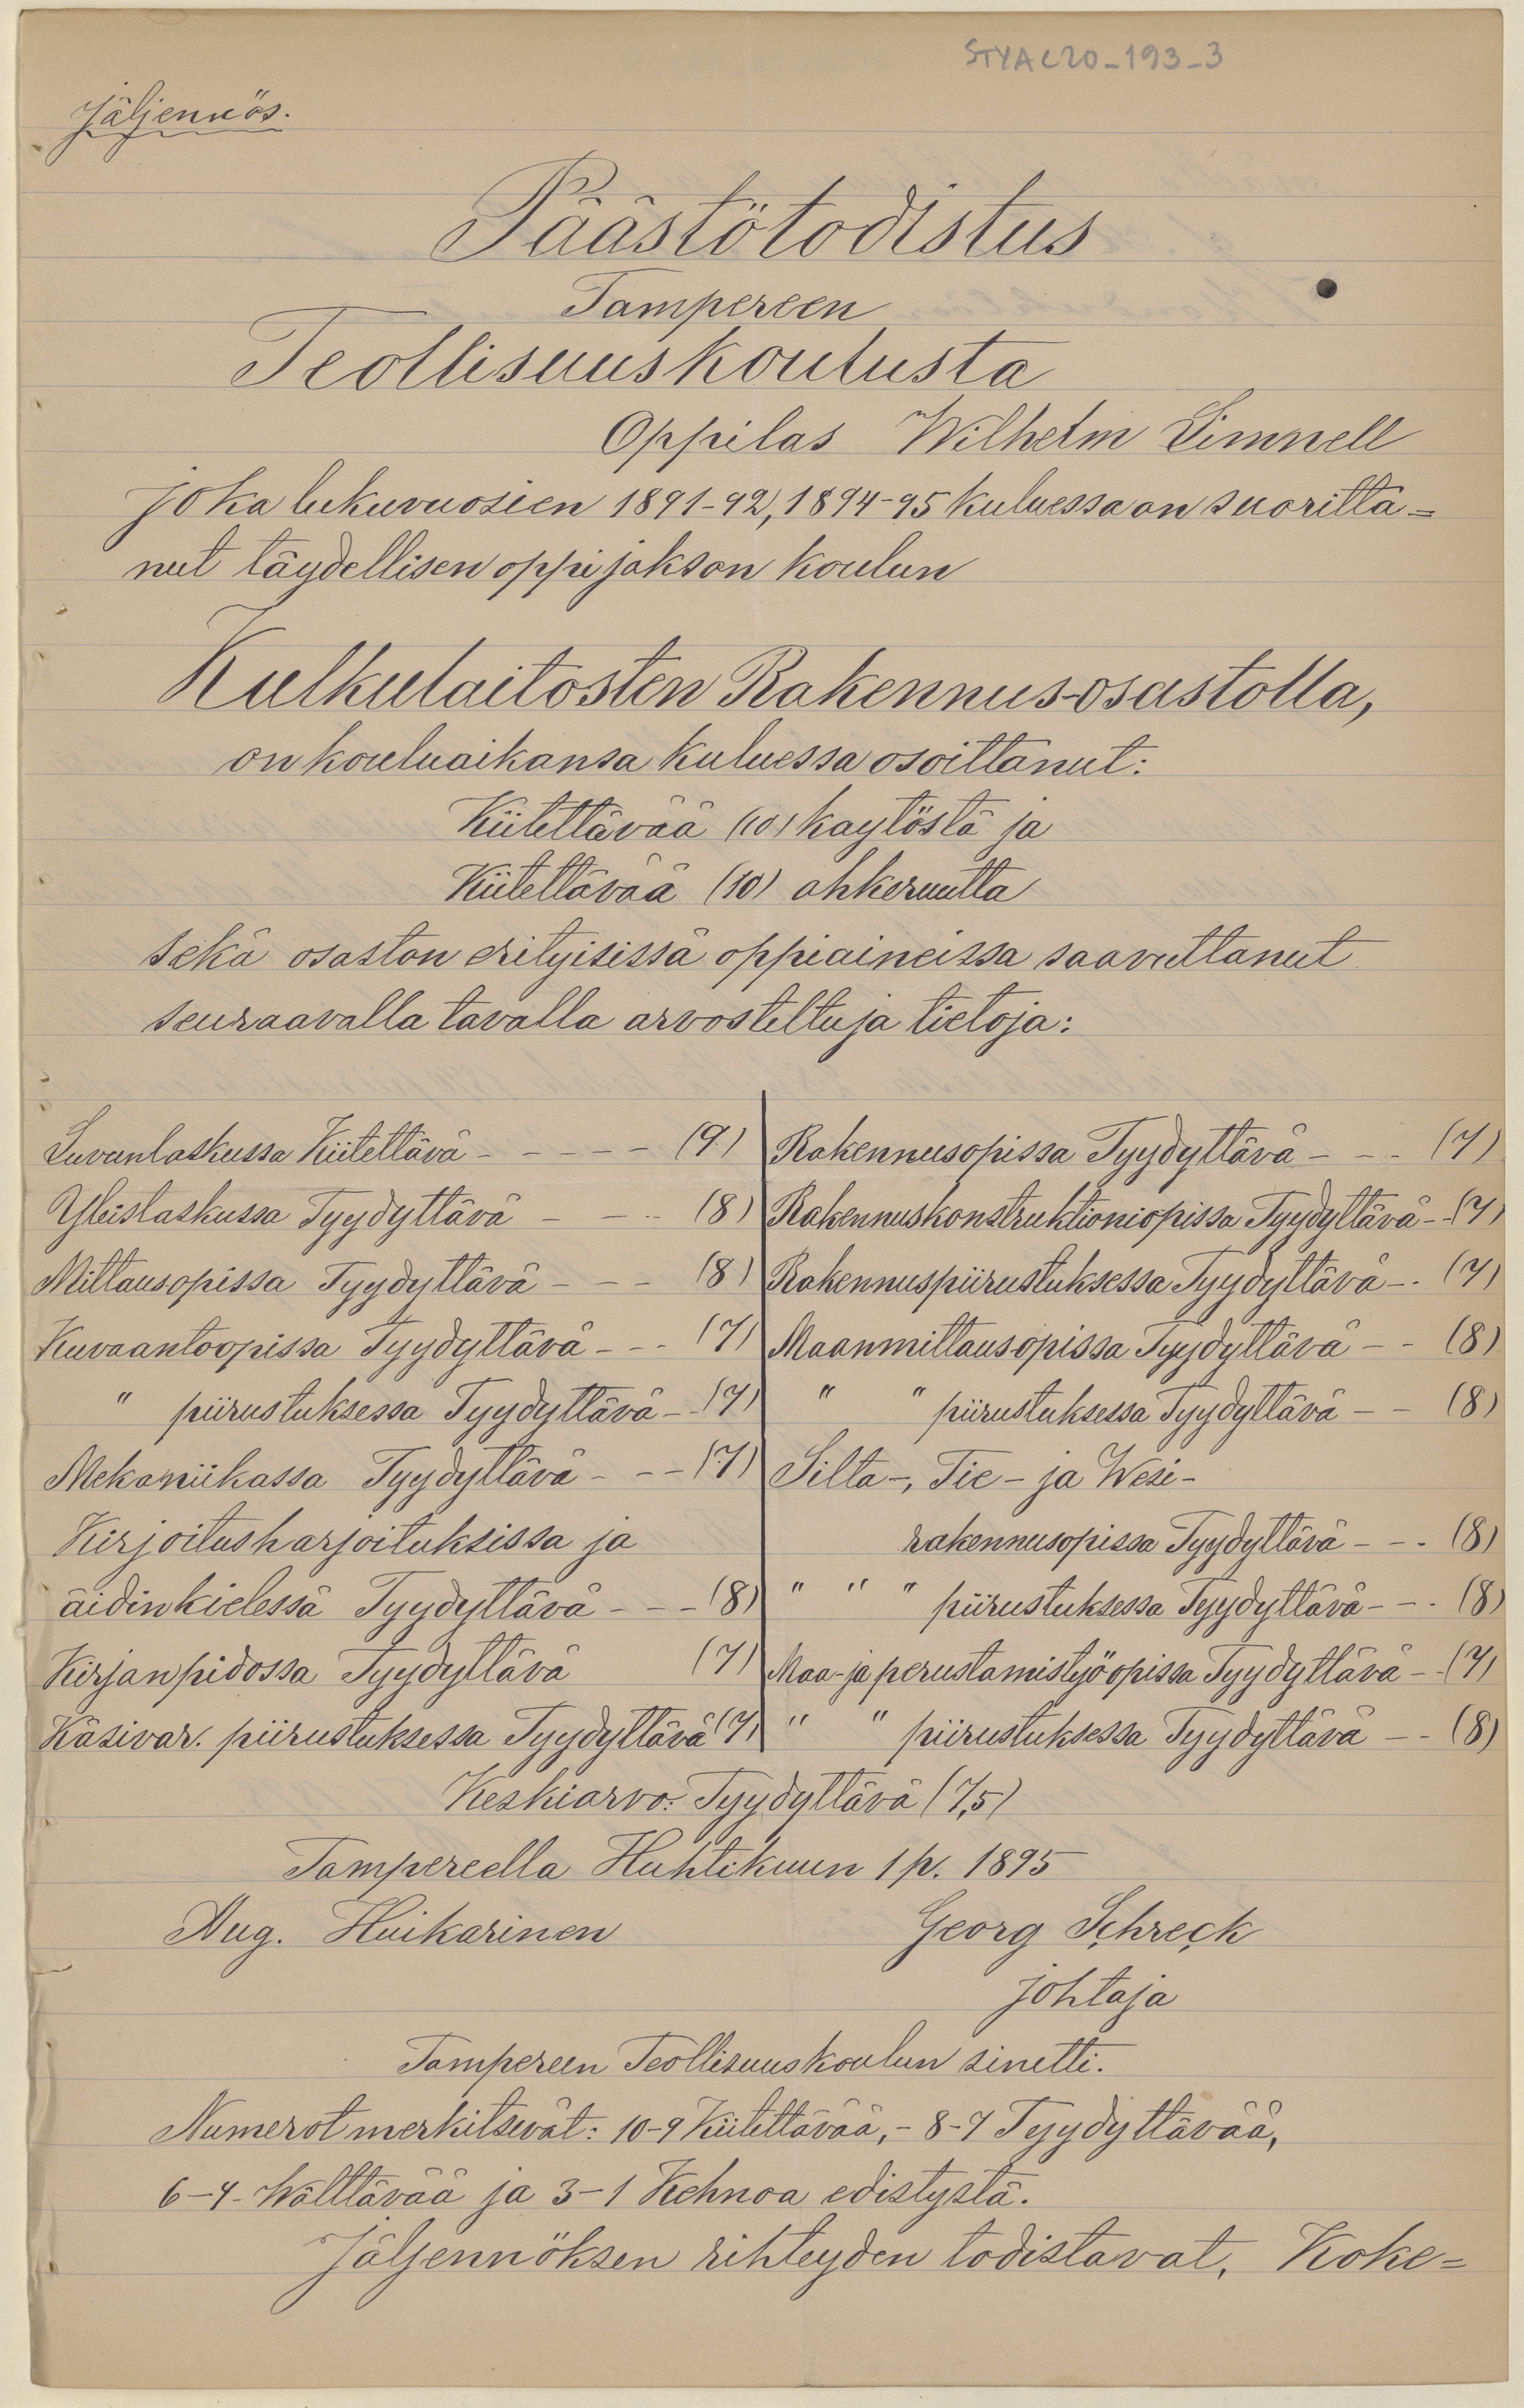 STYAL20-193-3
Jäljennös.
Päästötodistus
Tampereen
Teollisuuskoulusta
Oppilas Wilhelm Limnell
joka lukuvuosien 1891-92, 1894-95 kuluessa on suoritta=
nut täydellisen oppijakson koulun
Kulkulaitosten Rakennus-osastolla,
on kouluaikansa kuluessa osoittanut:
Kiitettävää (10) kaytöstä ja
Kiitettävää (10) ahkeruutta
sekä osaston erityisissä oppiaineissa saavuttanut
seuraavalla tavalla arvosteltuja tietoja:
Luvunlaskussa Kiitettävä - - - - - (9)
Yleislaskussa Tyydyttävä - - - (8)
Mittausopissa Tyydyttävä - - - (8)
Kuvaantoopissa Tyydyttävä - - - (7)
" piirustuksessa Tyydyttävä - - (7)
Mekaniikassa Tyydyttävä - - - (7)
Kirjoitusharjoituksissa ja
äidinkielessä Tyydyttävä - - - (8)
Kirjanpidossa Tyydyttävä (7)
Käsivar. piirustuksessa Tyydyttävä (7)
Rakennusopissa Tyydyttävä - - - (7)
Rakennuskonstruktioniopissa Tyydyttävä - - (7)
Rakennuspiirustuksessa Tyydyttävä - - (7)
Maanmittausopissa Tyydyttävä - - (8)
" " piirustuksessa Tyydyttävä - - (8)
Silta-, Tie- ja Wesi-
rakennusopissa Tyydyttävä - - - (8)
" " " piirustuksessa Tyydyttävä - - - (8)
Maa- ja perustamistyöopissa Tyydyttävä - - (7)
" " piirustuksessa Tyydyttävä - - (8)
Keskiarvo: Tyydyttävä (7,5)
Tampereella Huhtikuun 1 p. 1895
Aug. Huikarinen
Georg Schreck
johtaja
Tampereen Teollisuuskoulun sinetti.
Numerot merkitsevät: 10-9 Kiitettävää, - 8-7 Tyydyttävää,
6-4 - Wälttävää ja 3-1 Kehnoa edistystä.
Jäljennöksen rihteyden todistavat, Koke=